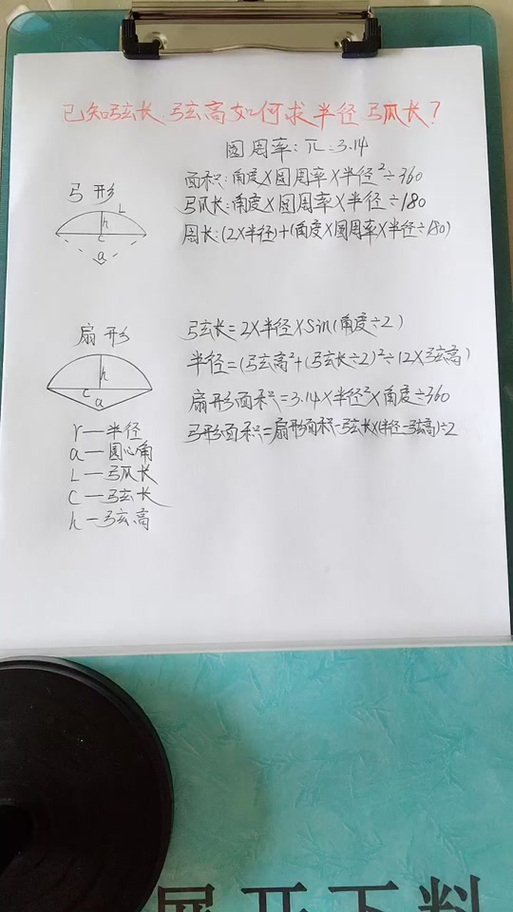 已知弦长、弦高如何求半径弧长?
圆周率:π=3.14
弓形
L
h
c
a
面积:角度×圆周率×半径²÷360
弧长:角度×圆周率×半径÷180
周长:(2×半径)+(角度×圆周率×半径÷180)
扇形
h
c
a
弦长=2×半径×Sin(角度÷2)
半径=(弦高²+(弦长÷2)²÷(2×弦高)
扇形面积=3.14×半径²×角度÷360
弓形面积=扇形面积-弦长×(半径-弦高)÷2
r—半径
a—圆心角
L—弧长
C—弦长
h—弦高
展开下料